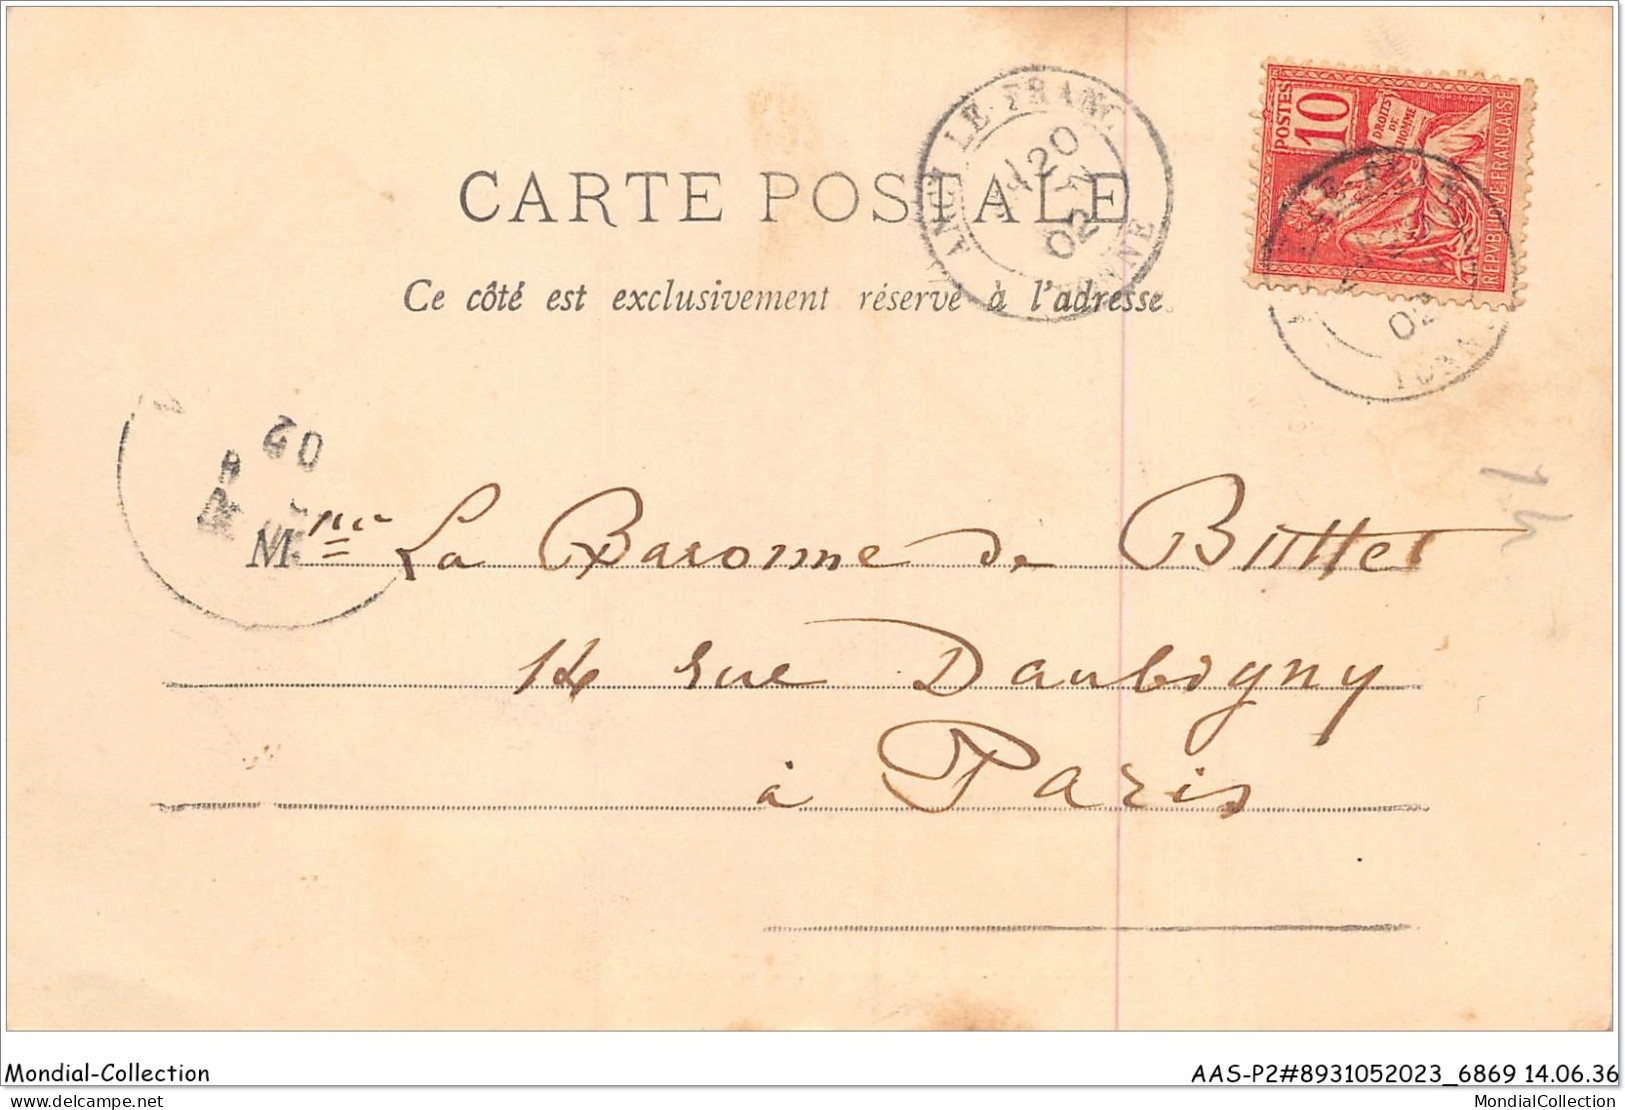 CARTE POSTALE
Ce côté est exclusivement réservé à l'adresse.
ANCY LE FRANC
20
02
YONNE
POSTES
10
DROITS DE L'HOMME
REPVBLIQVE FRANÇAISE
02
YONNE
02
14
Mme La Baronne de
14 rue Daubigny
à Paris
Mondial-Collection
AAS-P2#8931052023_6869 14.06.36
delcampe.net
MondialCollection